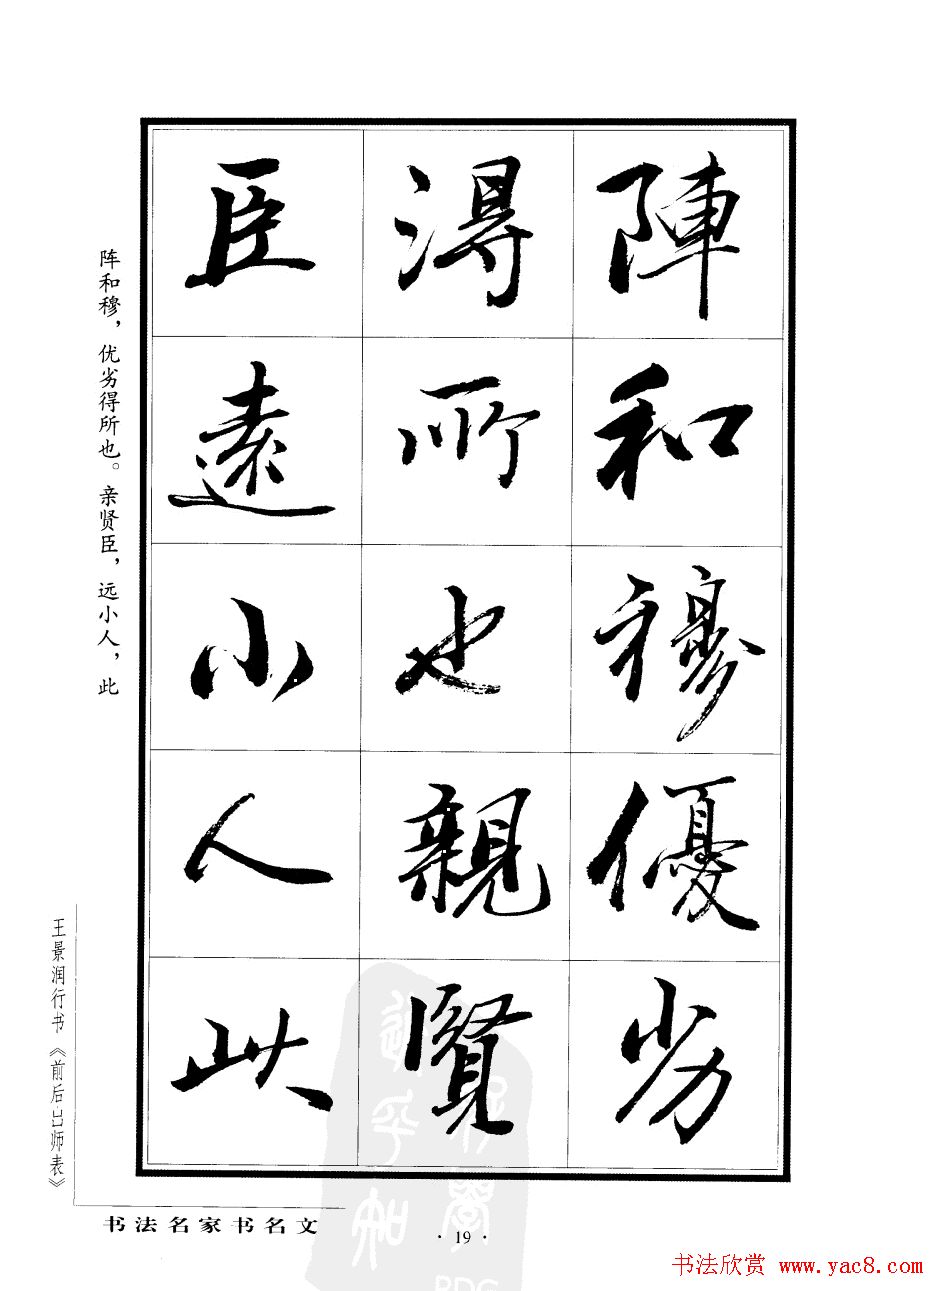 陣和穆優劣
得所也親賢
臣遠小人此
阵和穆，优劣得所也。亲贤臣，远小人，此
王景润行书《前后出师表》
书法名家书名文
·19·
书法欣赏 www.yac8.com